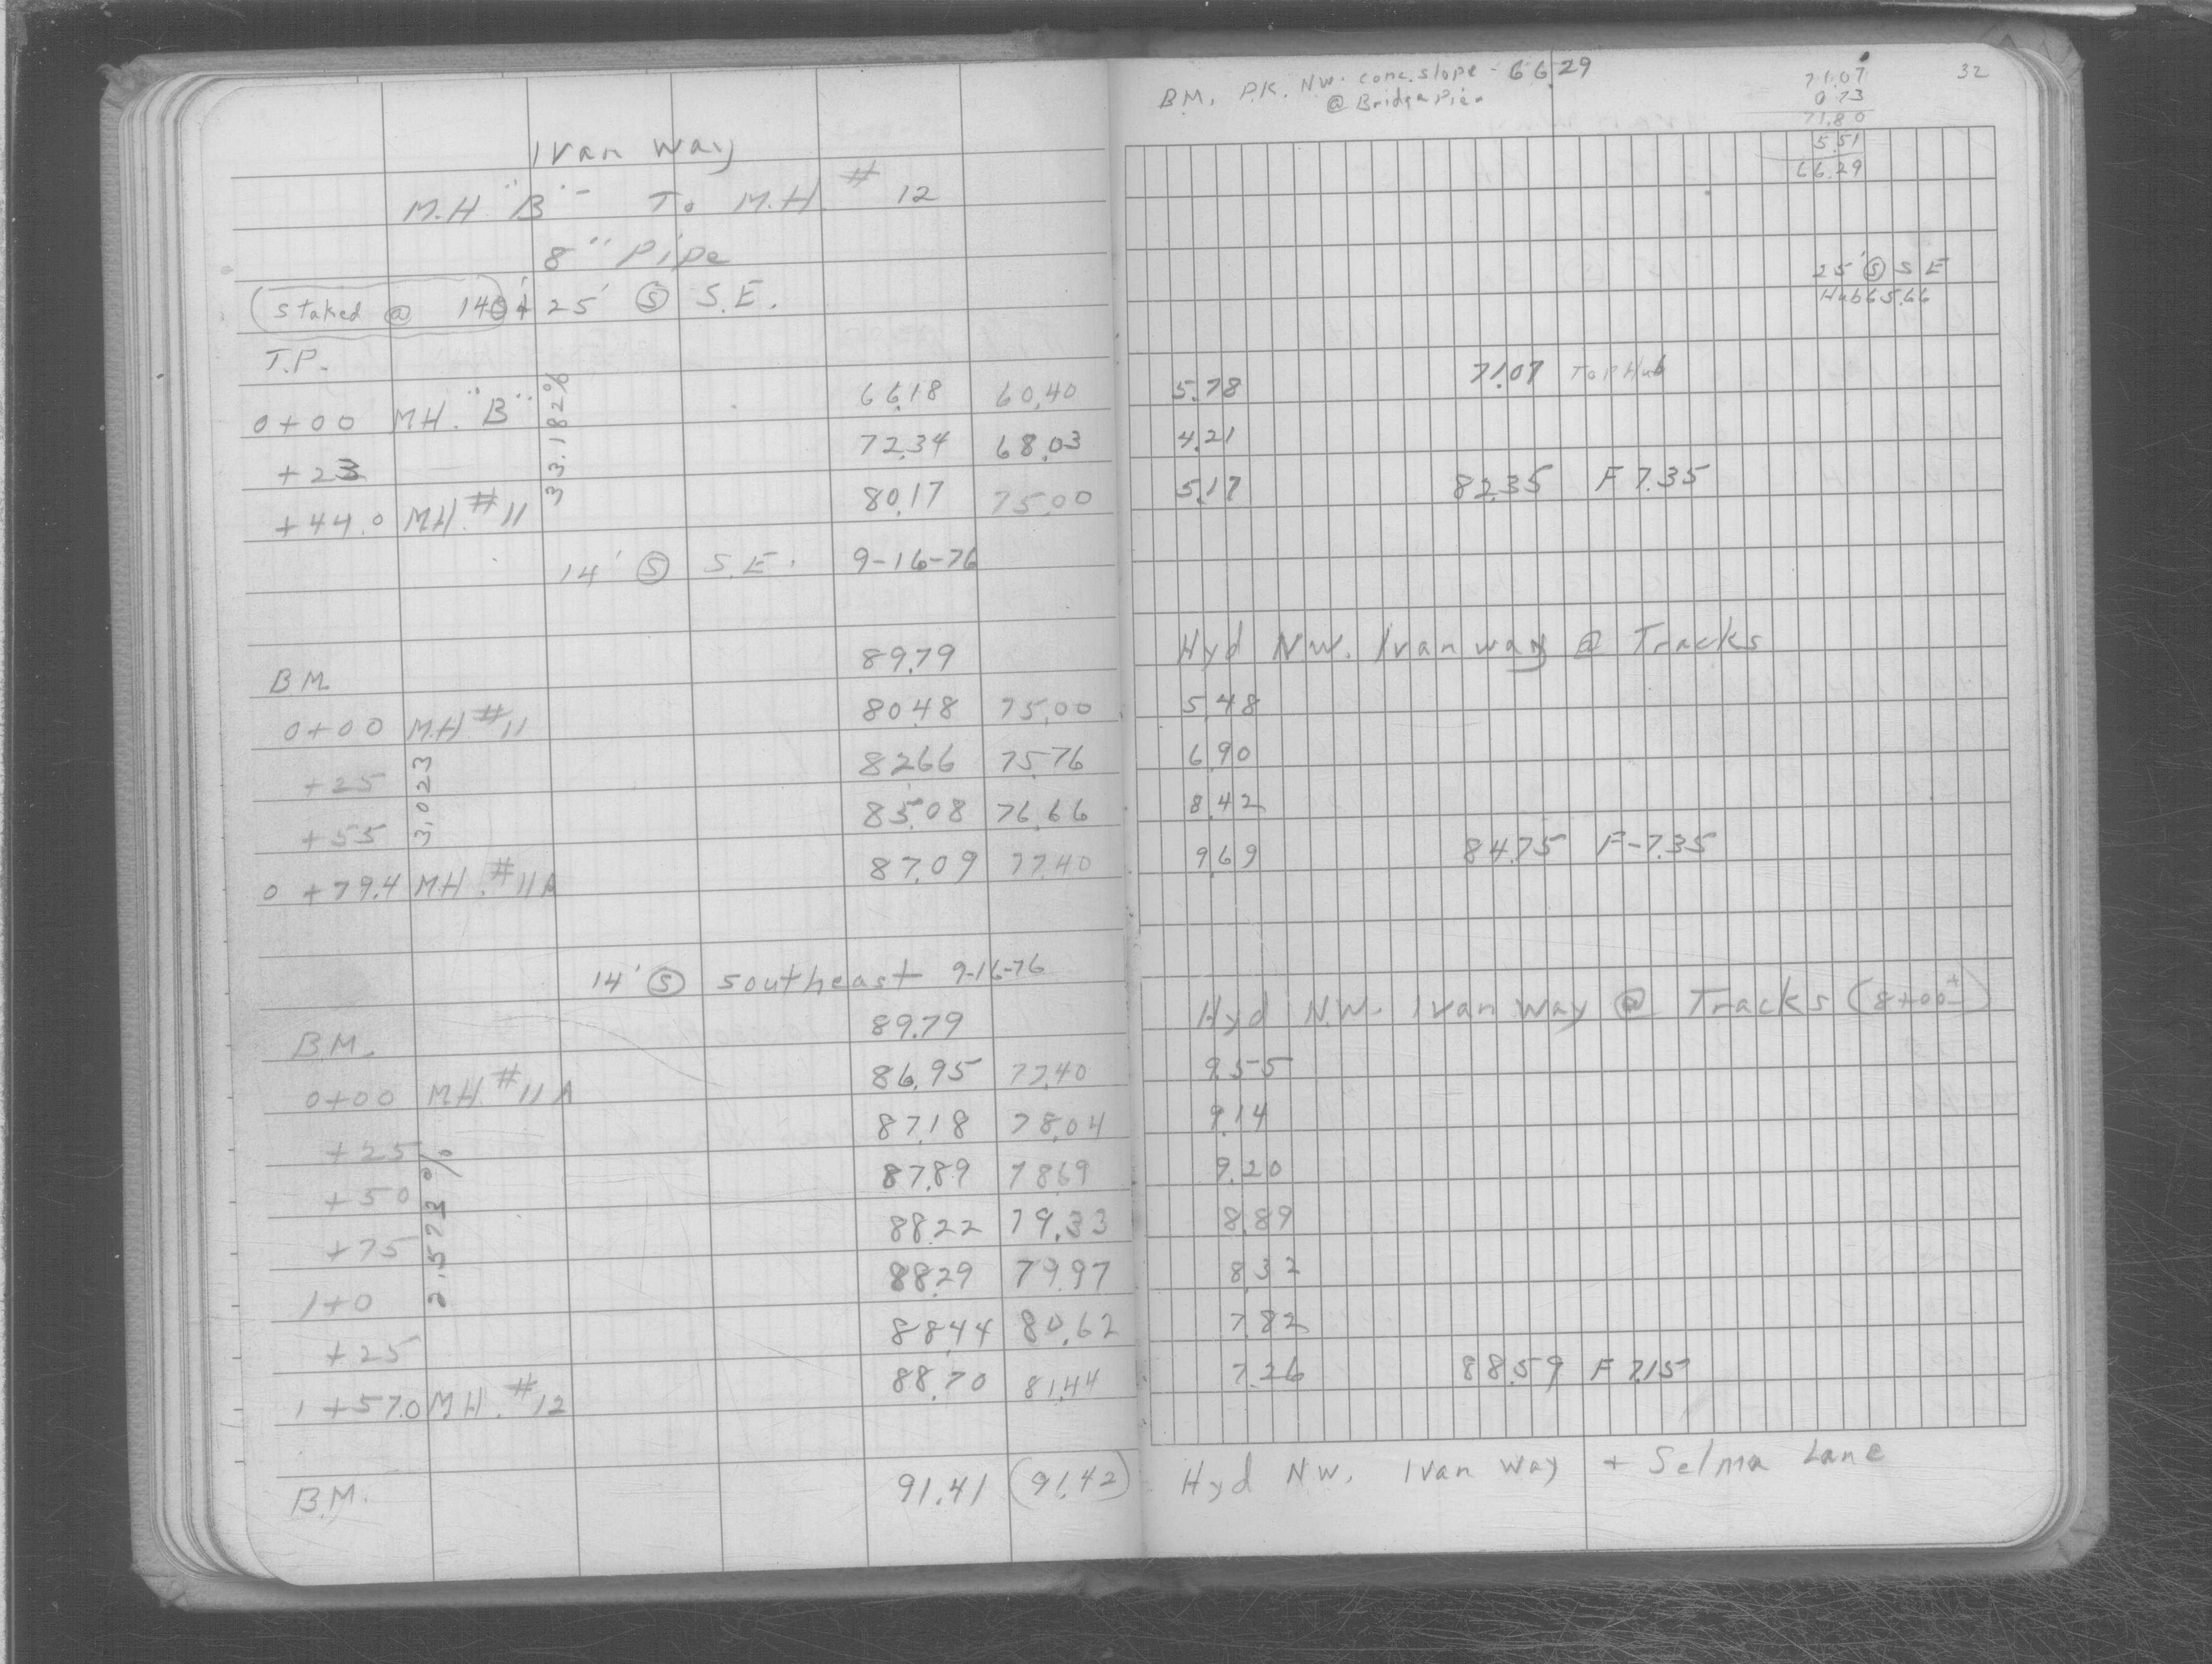 Ivan Way
M.H. "B" - To M.H. # 12
8" Pipe
Staked @ 140+ 25' Ⓢ S.E.
T.P.
0+00 MH. "B" 66.18 60.40
+23 72.34 68.03
33.182%
+44.0 MH. #11 80.17 75.00
14' Ⓢ S.E. 9-16-76
BM. 89.79
0+00 MH #11 80.48 75.00
+25 82.66 75.76
3.023
+55 85.08 76.66
0+79.4 MH. #11A 87.09 77.40
14' Ⓢ Southeast 9-16-76
B.M. 89.79
0+00 MH. #11A 86.95 77.40
+25 87.18 78.04
+50 87.89 78.69
2.573%
+75 88.22 79.33
1+0 88.29 79.97
+25 88.44 80.62
1+57.0 MH. #12 88.70 81.44
B.M. 91.41 (91.42)
32
BM. P.K. NW. conc. slope - 66.29
@ Bridge Pier
71.07
0.73
71.80
5.51
66.29
25' Ⓢ SE
Hub 65.66
5.78 71.07 Top Hub
4.21
5.17 82.35 F 7.35
Hyd NW. Ivan way @ Tracks
5.48
6.90
8.42
9.69 84.75 F-7.35
Hyd N.W. Ivan Way @ Tracks (8+00±)
9.55
9.14
9.20
8.89
8.32
7.82
7.26 88.59 F 7.15
Hyd NW. Ivan Way + Selma Lane